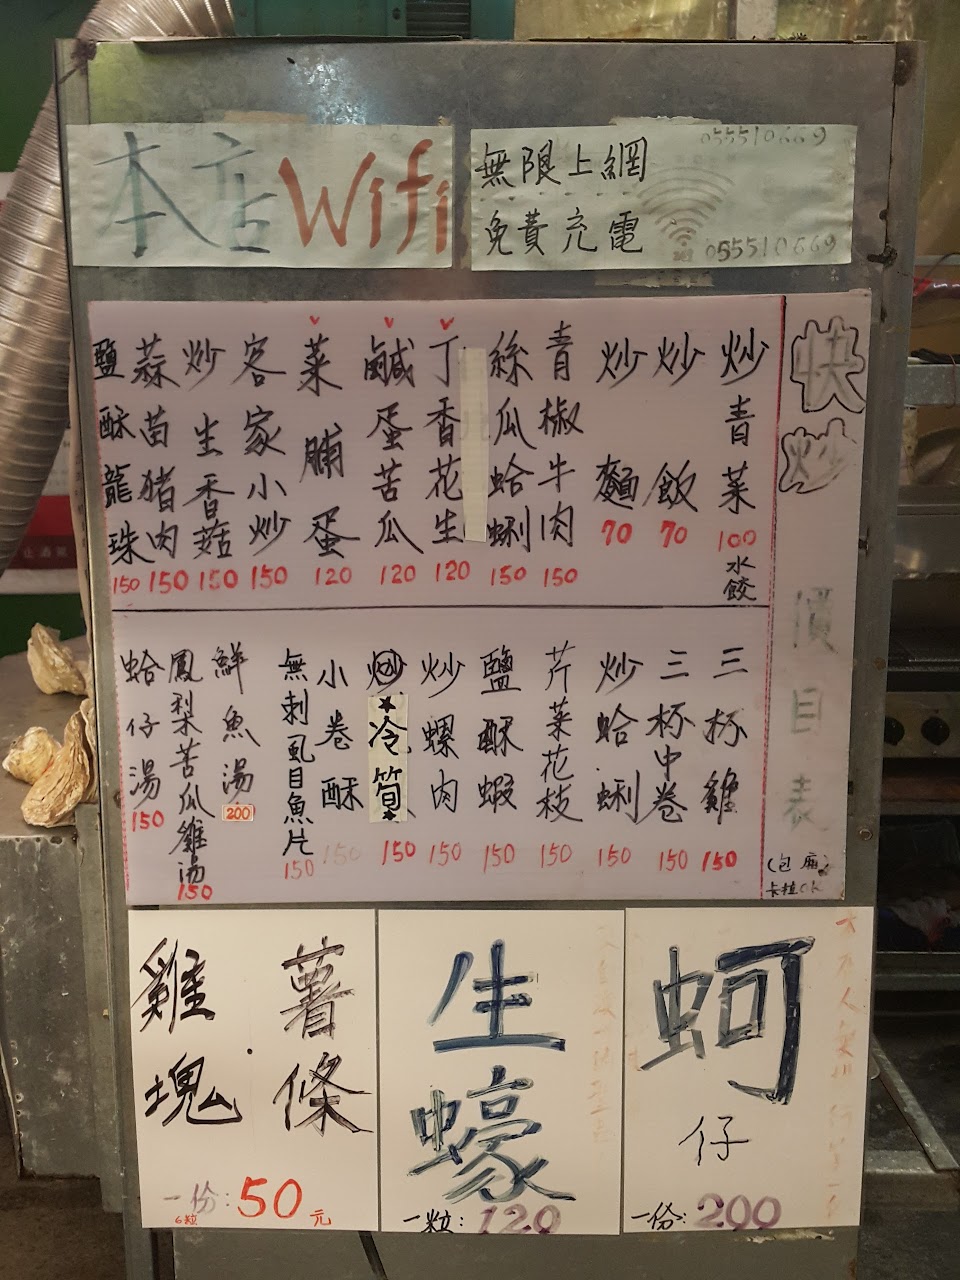 本店Wifi
無限上網
免費充電
055510669
055510669
快炒
價目表
(包廂)
卡拉OK
炒青菜 100
水餃
炒飯 70
炒麵 70
青椒牛肉 150
絲瓜蛤蜊 150
丁香花生 120
鹹蛋苦瓜 120
菜脯蛋 120
客家小炒 150
炒生香菇 150
蒜苗豬肉 150
鹽酥龍珠 150
三杯雞 150
三杯中卷 150
炒蛤蜊 150
芹菜花枝 150
鹽酥蝦 150
炒螺肉 150
冷筍 150
小卷酥 150
無刺虱目魚片 150
鮮魚湯 200
鳳梨苦瓜雞湯 150
蛤仔湯 150
薯條
雞塊
一份:50元
6粒
生蠔
一粒:120
蚵仔
一份:200